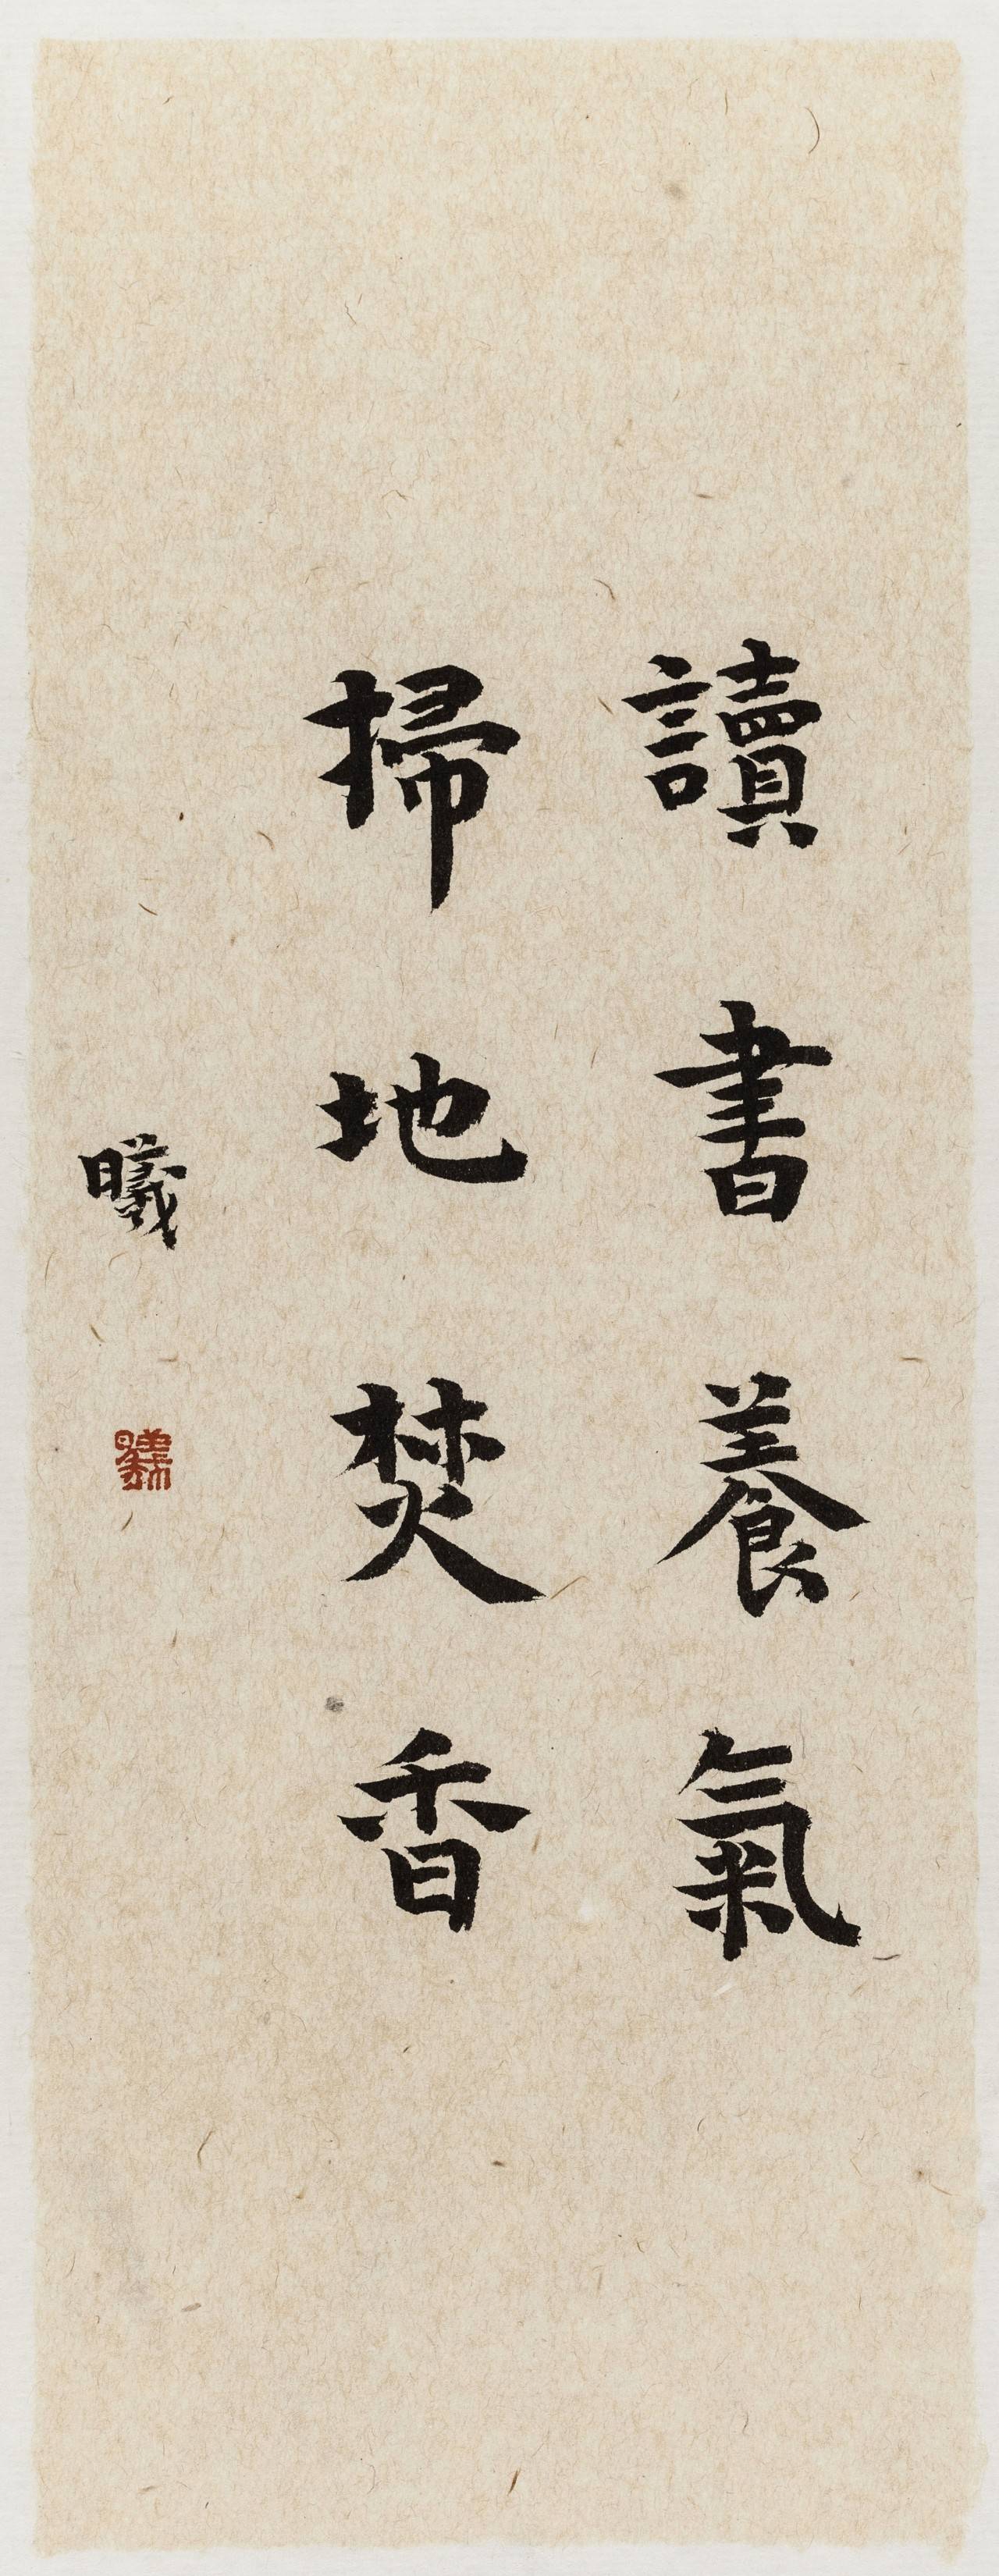 讀書養氣
掃地焚香
曦
曦